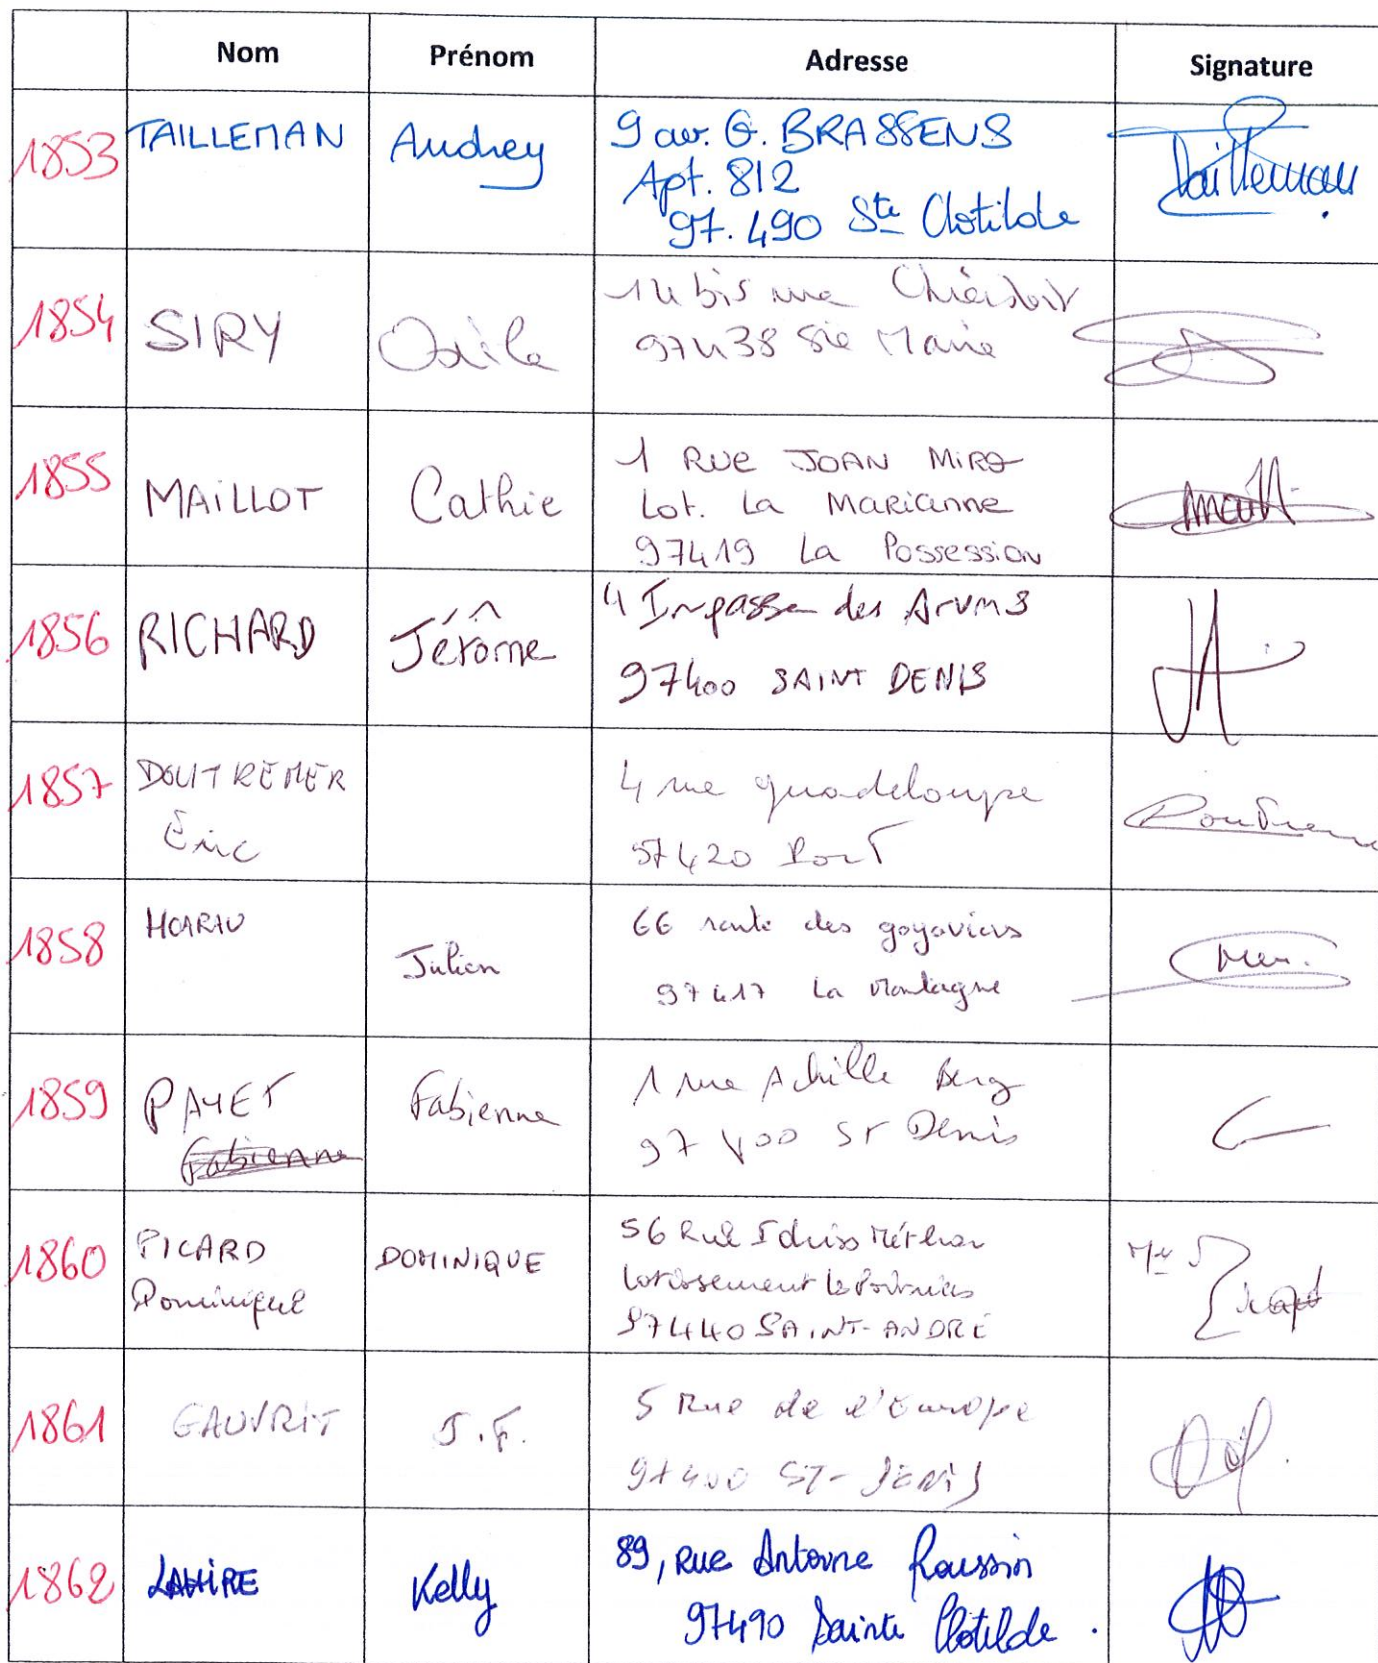 Nom Prénom Adresse Signature
1853 TAILLEMAN Audrey 9 av. G. BRASSENS
Apt. 812
97.490 Ste Clotilde
Tailleman
1854 SIRY Odile 14 bis rue
97438 Ste Marie
1855 MAILLOT Cathie 1 RUE JOAN MIRO
Lot. La Marianne
97419 La Possession
1856 RICHARD Jérôme 4 Impasse des Arums
97400 SAINT DENIS
1857 DOUTREMER 4 rue guadeloupe
Éric 97420 Port
1858 HOARAU Julien 66 route des goyaviers
97417 La Montagne
1859 PAYET Fabienne 1 rue Achille Berg
Fabienne 97400 St Denis
1860 PICARD DOMINIQUE 56 Rue
Dominique Lotissement
97440 SAINT-ANDRÉ
1861 GAUVRIT J.F. 5 Rue de l'Europe
97400 ST-DENIS
1862 LAHIRE Kelly 89, Rue Antoine Roussin
97490 Sainte Clotilde.